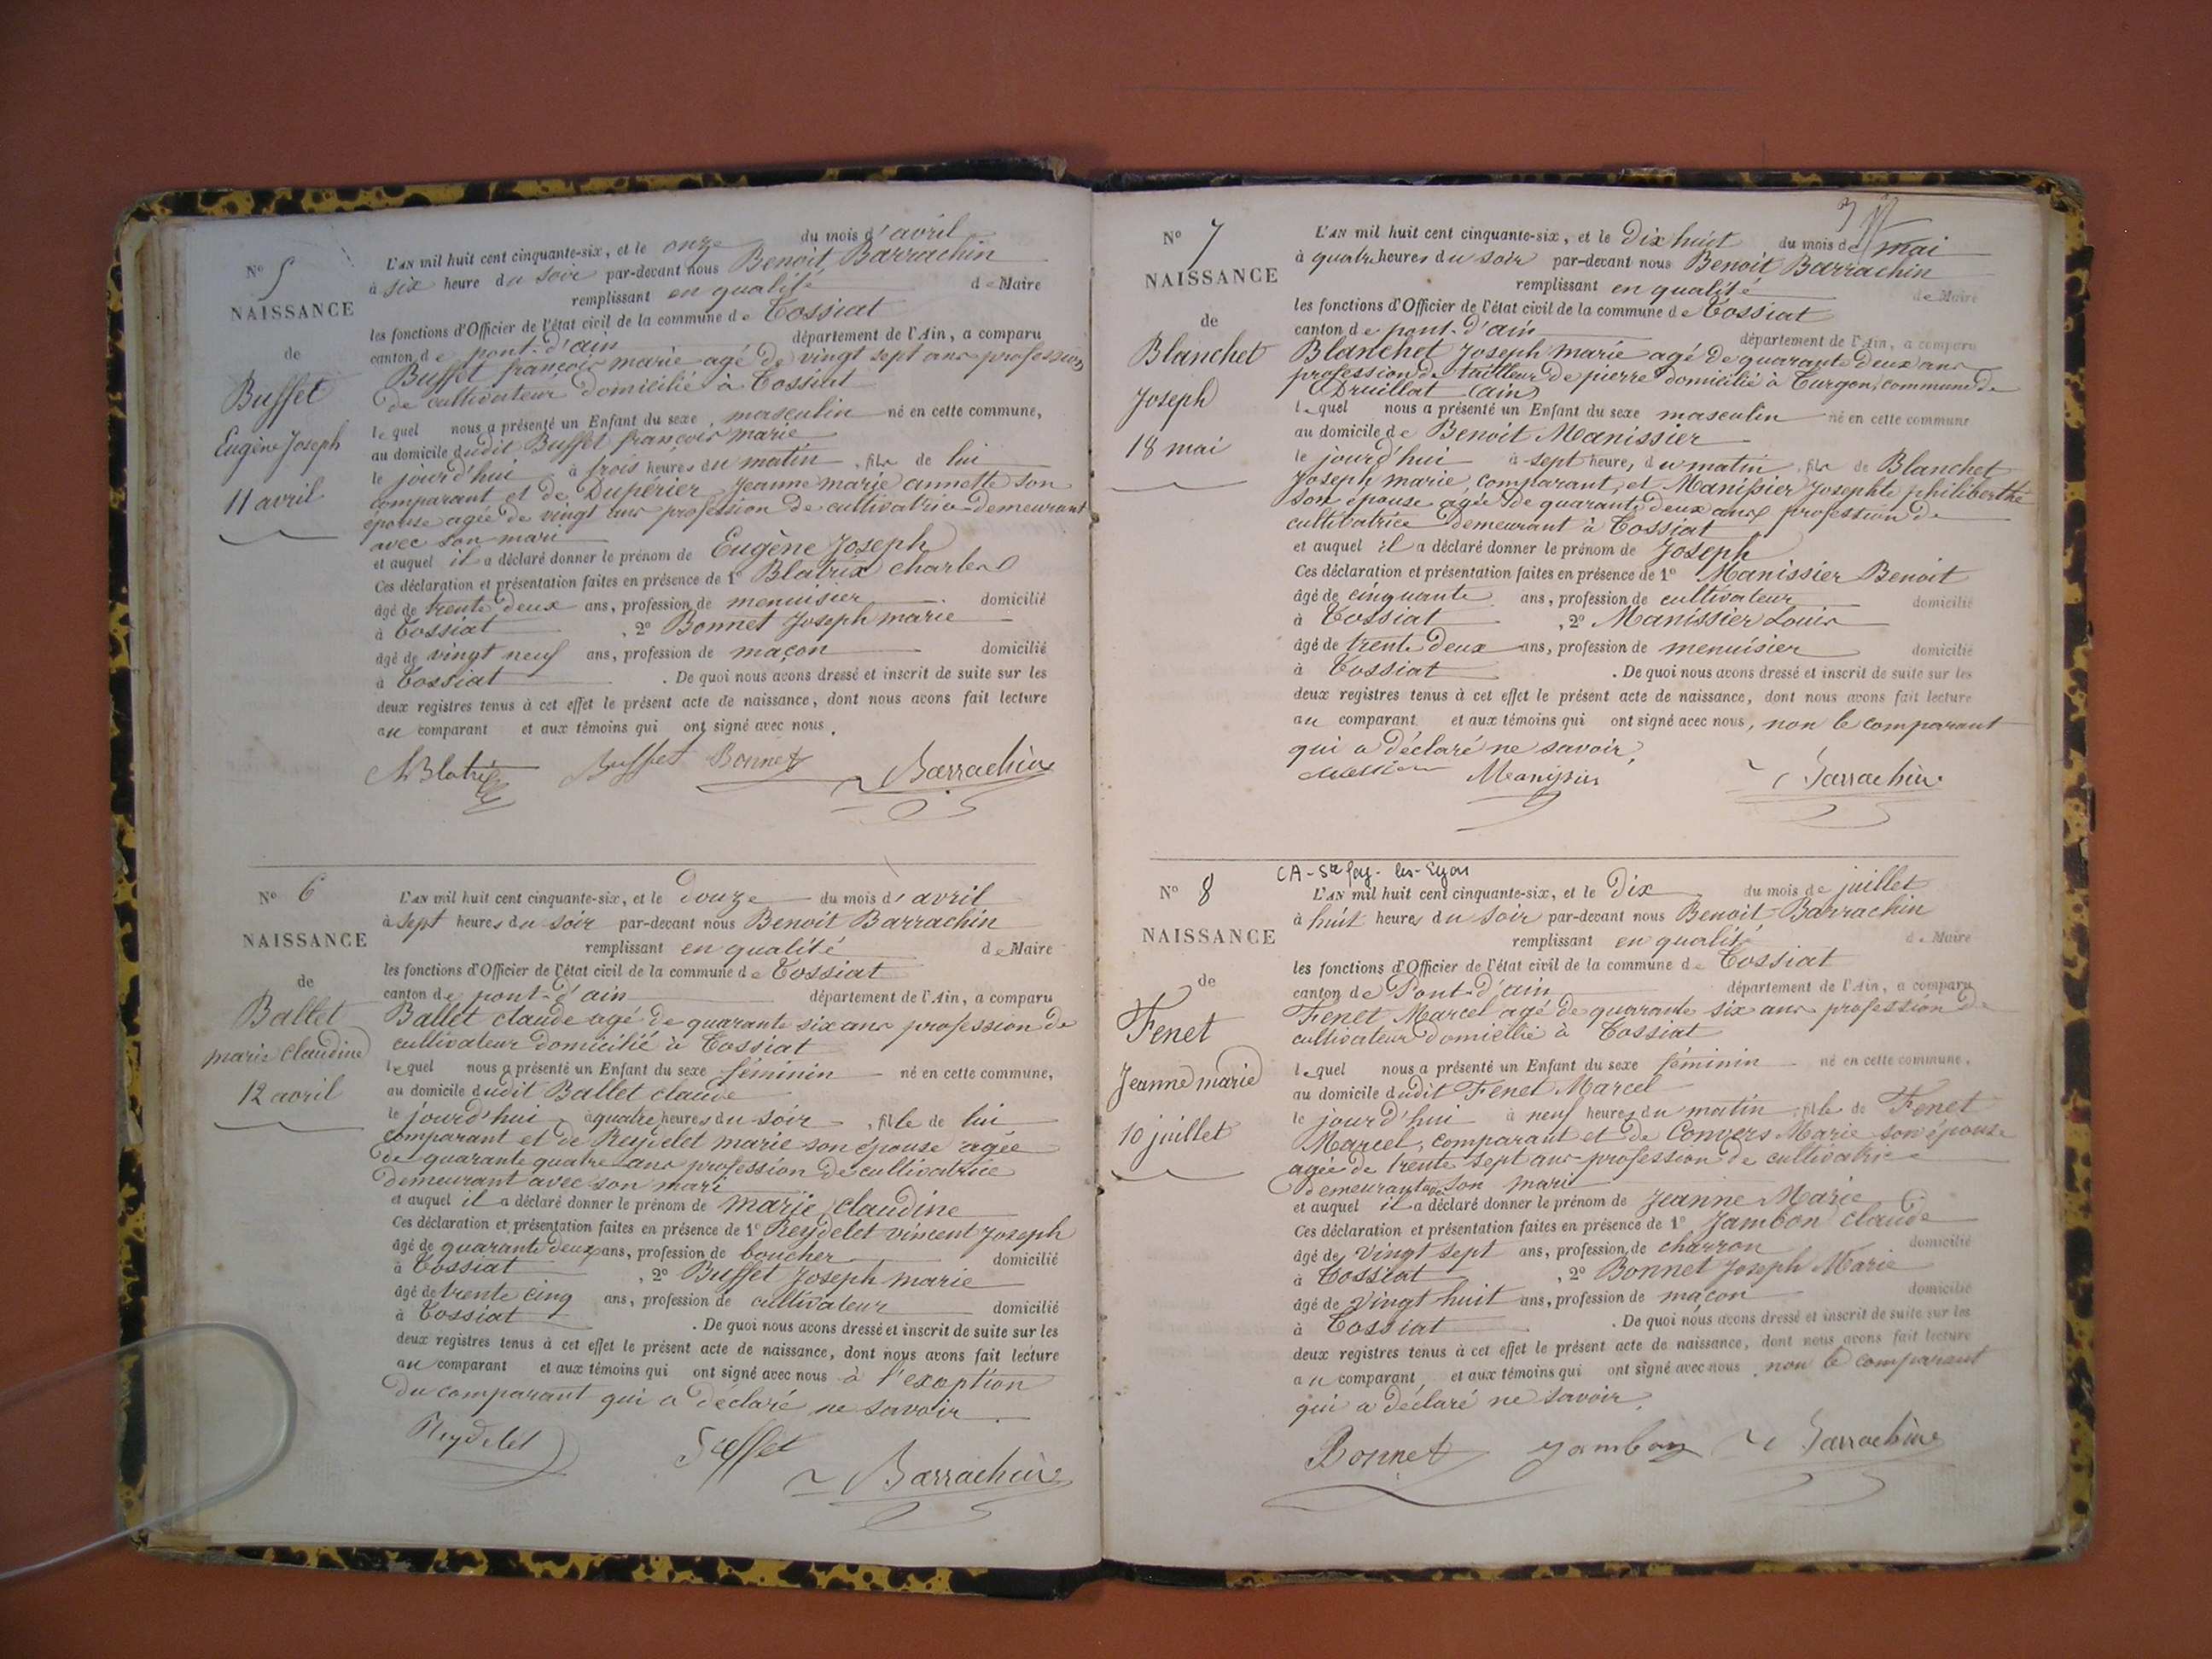 N° 5
NAISSANCE
de
Buffet
Eugène Joseph
11 avril
L'AN mil huit cent cinquante-six, et le onze du mois d'avril
à six heure du soir par-devant nous Benoit Barrachin
remplissant en qualité de Maire
les fonctions d'Officier de l'état civil de la commune de Tossiat
canton de pont-d'ain département de l'Ain, a comparu
Buffet françois marie agé de vingt sept ans profession
de cultivateur domicilié à Tossiat
lequel nous a présenté un Enfant du sexe masculin né en cette commune,
au domicile dudit Buffet françois marie
le jourd'hui à trois heures du matin, fils de lui
comparant et de Dupérier Jeanne marie annette son
épouse agée de vingt ans profession de cultivatrice demeurant
avec son mari
et auquel il a déclaré donner le prénom de Eugène Joseph
Ces déclaration et présentation faites en présence de 1° Blatrix charles
âgé de trente deux ans, profession de menuisier domicilié
à Tossiat, 2° Bonnet Joseph marie
âgé de vingt neuf ans, profession de maçon domicilié
à Tossiat. De quoi nous avons dressé et inscrit de suite sur les
deux registres tenus à cet effet le présent acte de naissance, dont nous avons fait lecture
au comparant et aux témoins qui ont signé avec nous.
Blatrix Buffet Bonnet Barrachin
N° 6
NAISSANCE
de
Ballet
marie claudine
12 avril
L'AN mil huit cent cinquante-six, et le douze du mois d'avril
à sept heures du soir par-devant nous Benoit Barrachin
remplissant en qualité de Maire
les fonctions d'Officier de l'état civil de la commune de Tossiat
canton de pont-d'ain département de l'Ain, a comparu
Ballet claude agé de quarante six ans profession de
cultivateur domicilié à Tossiat
lequel nous a présenté un Enfant du sexe féminin né en cette commune,
au domicile dudit Ballet claude
le jourd'hui à quatre heures du soir, fille de lui
comparant et de Reydelet marie son épouse agée
de quarante quatre ans profession de cultivatrice
demeurant avec son mari
et auquel il a déclaré donner le prénom de marie claudine
Ces déclaration et présentation faites en présence de 1° Reydelet vincent Joseph
âgé de quarante deux ans, profession de boucher domicilié
à Tossiat, 2° Buffet Joseph marie
âgé de trente cinq ans, profession de cultivateur domicilié
à Tossiat. De quoi nous avons dressé et inscrit de suite sur les
deux registres tenus à cet effet le présent acte de naissance, dont nous avons fait lecture
au comparant et aux témoins qui ont signé avec nous à l'exeption
du comparant qui a déclaré ne savoir.
Reydelet Buffet Barrachin
3
N° 7
NAISSANCE
de
Blanchet
Joseph
18 mai
L'AN mil huit cent cinquante-six, et le Dix huit du mois de mai
à quatre heures du soir par-devant nous Benoit Barrachin
remplissant en qualité de Maire
les fonctions d'Officier de l'état civil de la commune de Tossiat
canton de pont-d'ain département de l'Ain, a comparu
Blanchet Joseph marie agé de quarante deux ans
profession de tailleur de pierre domicilié à Turgon, commune de
Druillat (ain)
lequel nous a présenté un Enfant du sexe masculin né en cette commune
au domicile de Benoit Manissier
le jourd'hui à sept heures du matin, fils de Blanchet
Joseph marie, comparant, et Manissier Josephte philiberthe
son épouse agée de quarante deux ans profession de
cultivatrice demeurant à Tossiat
et auquel il a déclaré donner le prénom de Joseph
Ces déclaration et présentation faites en présence de 1° Manissier Benoit
âgé de cinquante ans, profession de cultivateur domicilié
à Tossiat, 2° Manissier Louis
âgé de trente deux ans, profession de menuisier domicilié
à Tossiat. De quoi nous avons dressé et inscrit de suite sur les
deux registres tenus à cet effet le présent acte de naissance, dont nous avons fait lecture
au comparant et aux témoins qui ont signé avec nous, non le comparant
qui a déclaré ne savoir.
Manissier Barrachin
CA - Ste foy-les-Lyon
N° 8
NAISSANCE
de
Fenet
Jeanne marie
10 juillet
L'AN mil huit cent cinquante-six, et le Dix du mois de juillet
à huit heures du soir par-devant nous Benoit Barrachin
remplissant en qualité de Maire
les fonctions d'Officier de l'état civil de la commune de Tossiat
canton de Pont-d'ain département de l'Ain, a comparu
Fenet Marcel agé de quarante six ans profession de
cultivateur domicilié à Tossiat
lequel nous a présenté un Enfant du sexe féminin né en cette commune,
au domicile dudit Fenet Marcel
le jourd'hui à neuf heures du matin, fille de Fenet
Marcel, comparant et de Convers Marie son épouse
agée de trente sept ans profession de cultivatrice
demeurant avec son mari
et auquel il a déclaré donner le prénom de Jeanne Marie
Ces déclaration et présentation faites en présence de 1° Jambon claude
âgé de vingt sept ans, profession de charron domicilié
à Tossiat, 2° Bonnet Joseph Marie
âgé de vingt huit ans, profession de maçon domicilié
à Tossiat. De quoi nous avons dressé et inscrit de suite sur les
deux registres tenus à cet effet le présent acte de naissance, dont nous avons fait lecture
au comparant et aux témoins qui ont signé avec nous, non le comparant
qui a déclaré ne savoir.
Bonnet Jambon Barrachin